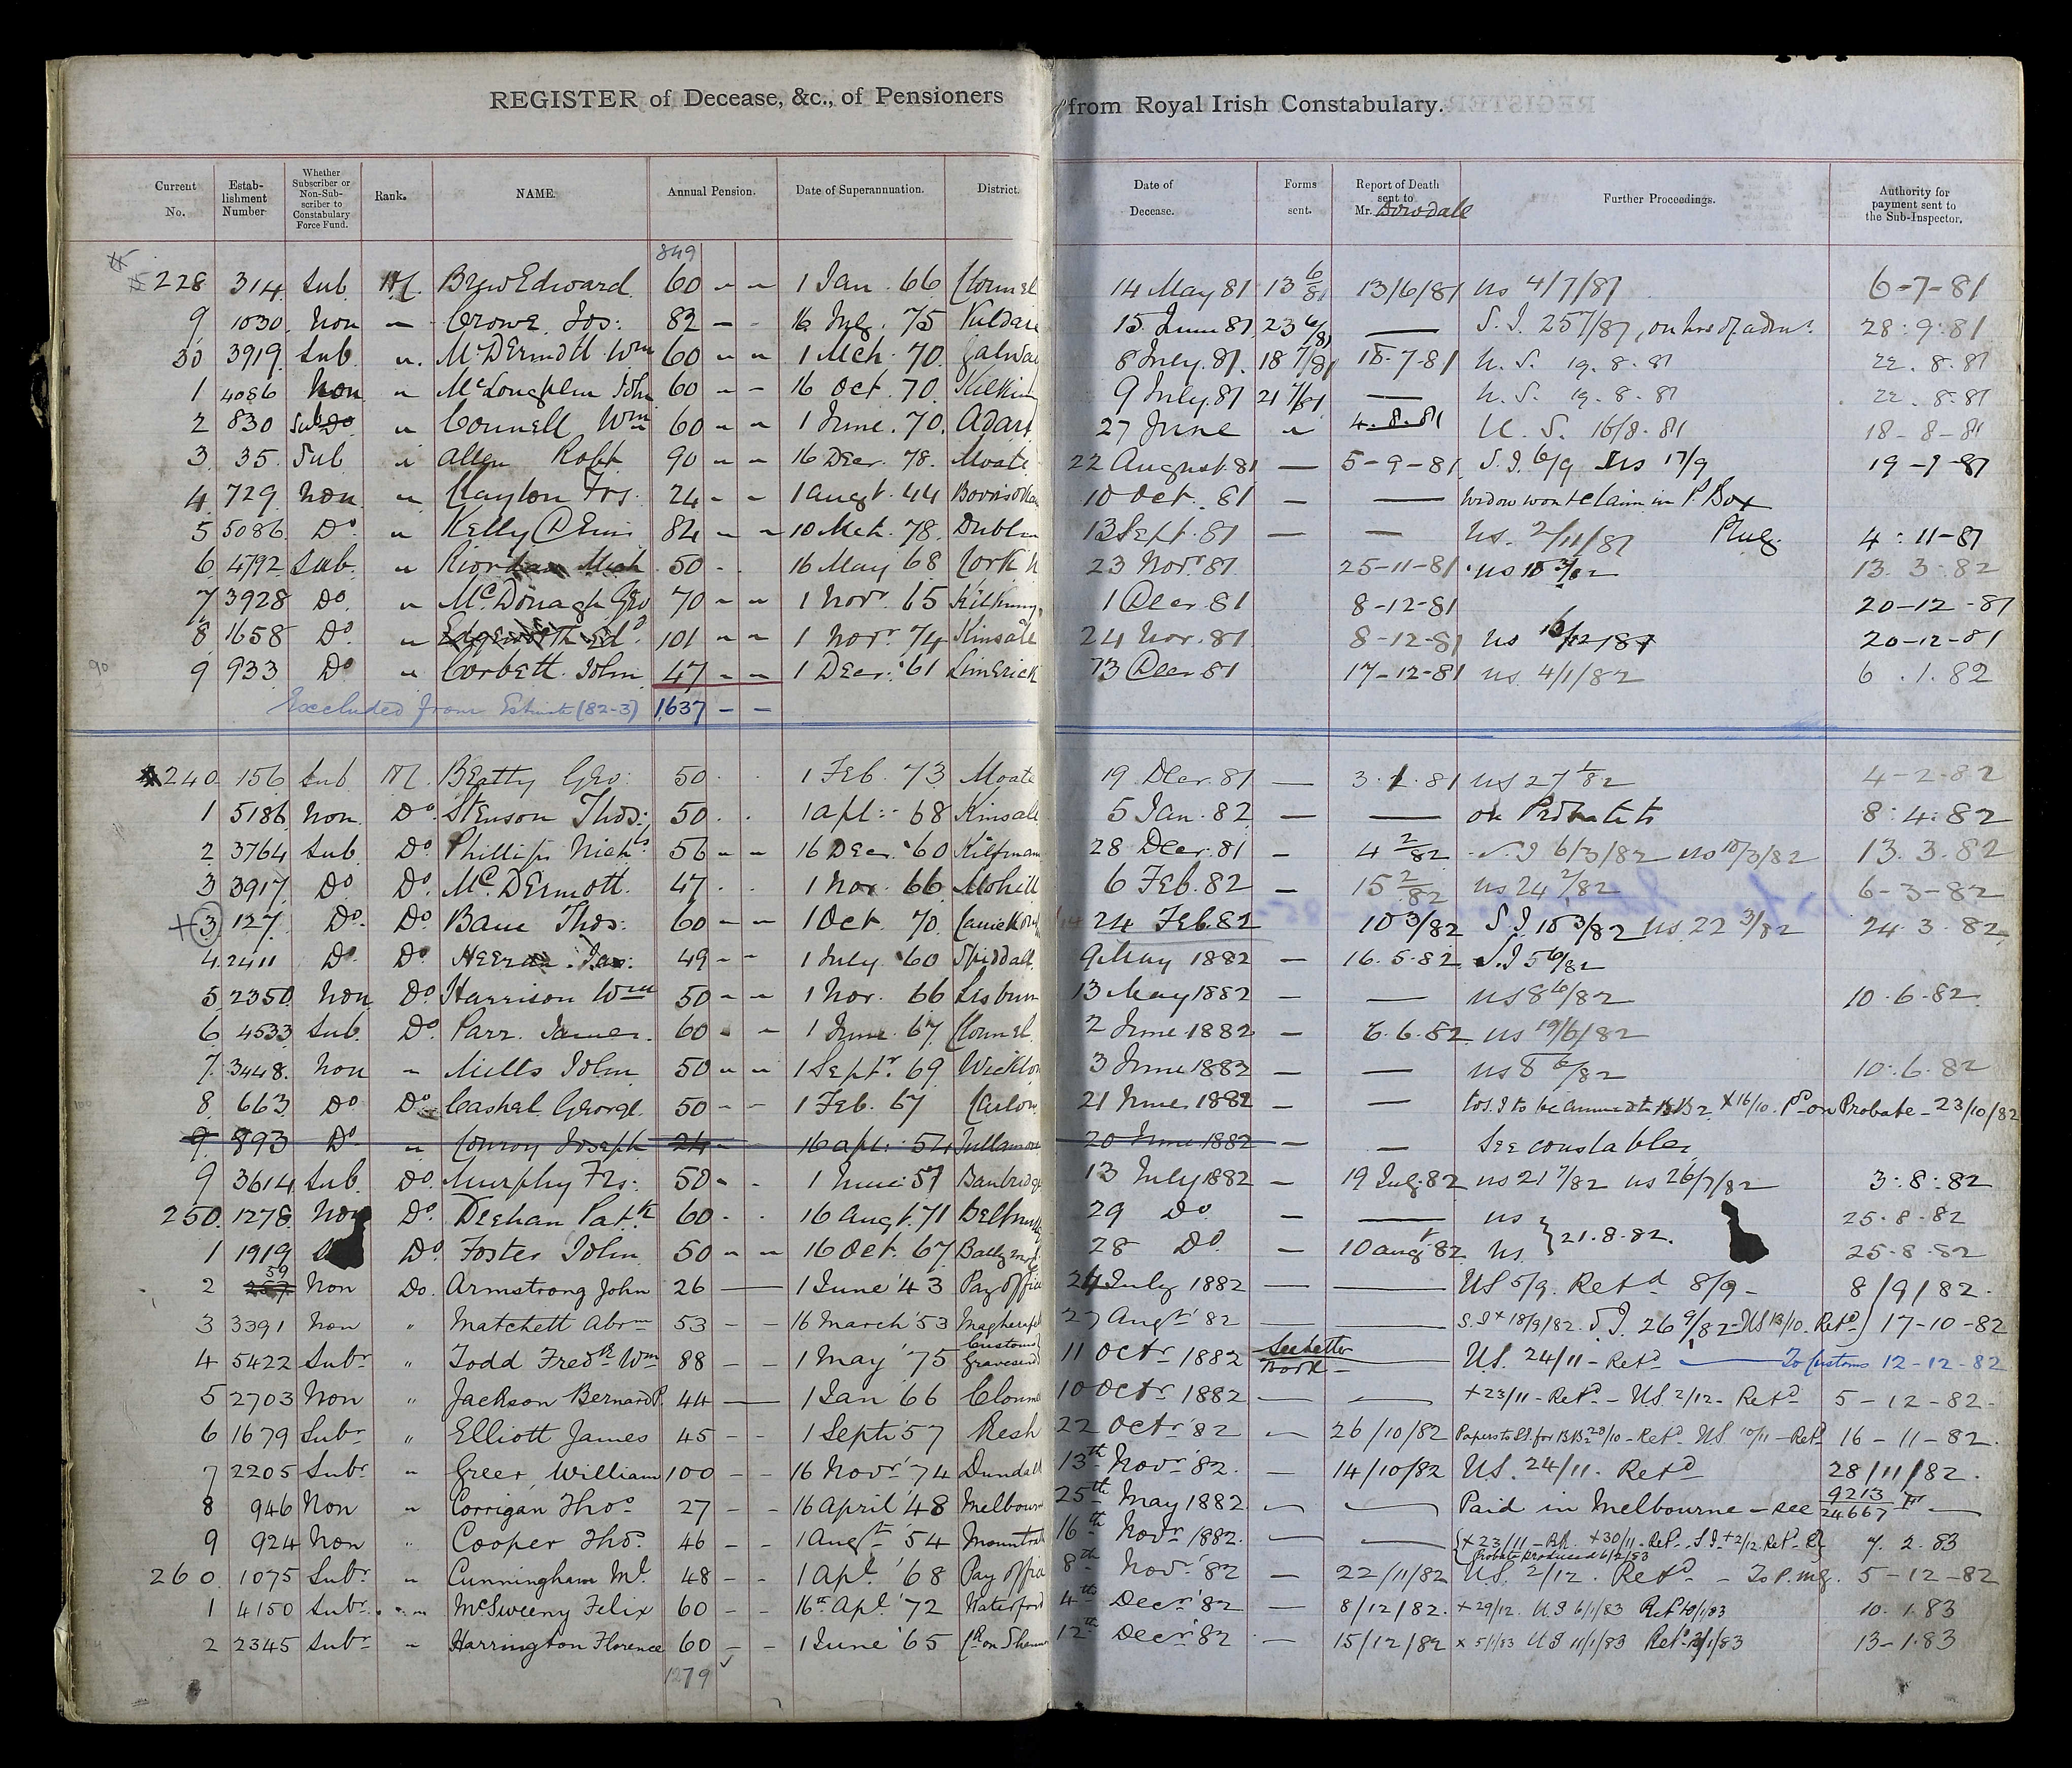 REGISTER of Decease, &c., of Pensioners from Royal Irish Constabulary.
Current No. Estab-lishment Number Whether Subscriber or Non-Sub-scriber to Constabulary Force Fund. Rank. NAME. Annual Pension. Date of Superannuation. District. Date of Decease. Forms sent. Report of Death sent to Mr. Dowdall Further Proceedings. Authority for payment sent to the Sub-Inspector.
849
228 314 Sub. M. Brew Edward 60 - - 1 Jan. 66 Clonmel 14 May 81 13 6/81 13/6/81 us 4/7/81 6-7-81
9 1030 Non " Crowe Jos: 82 - - 75 Kildare 15 June 81 23 6/81 — S.I. 28.9.81
30 3919 Sub. " McDermott Wm 60 - - 1 Mch. 70 Galway 8 July 81 18 7/81 18-7-81 U.S. 19.8.81 22.8.81
1 4086 Non " McLoughlin John 60 - - 16 Oct. 70 9 July 81 21 7/81 — U.S. 19.8.81 22.8.81
2 830 Sub Do " Connell Wm 60 - - 1 June. 70 Adare 27 June " 4.8.81 U.S. 16/8.81 18-8-81
3 35 Sub " Allen Robt 90 - - 16 Decr. 78. Moate 22 August 81 — 5-9-81 S.I. 6/9 us 17/9 19-9-81
4 729 Non " Clayton Frs. 24 - - 1 Augt. 44 10 Oct. 81 — — widow wont claim in P Box
5 5086 Do " Kelly Denis 84 - - 10 Mch. 78. Dublin 13 Sept. 81 — — us. 2/11/81 4:11-81
6 4792 Sub. " Riordan Mich 50 - - 16 May 68 Cork 23 Novr 81 25-11-81 us 10 3/82 13.3.82
7 3928 Do " McDonagh Geo 70 - - 1 Novr. 65 Kilkenny 1 Decr. 81 8-12-81 20-12-81
8 1658 Do " Edgeworth Edd 101 - - 1 Novr. 74 Kinsale 24 Nov. 81 8-12-81 us 16/12/81 20-12-81
9 933 Do " Corbett John 47 - - 1 Decr. '61 Limerick 13 Decr 81 17-12-81 us 4/1/82 6.1.82
90
Excluded from Estimate (82-3) 1637 - -
240 156 Sub M. Beatty Geo: 50 . . 1 Feb. 73 Moate 19 Decr. 81 — 3.1.81 us 27 1/82 4-2-82
1 5186 Non. Do Stenson Thos: 50 . . 1 Apl: 68 Kinsale 5 Jan. 82 — — on Probate 8:4:82
2 3764 Sub Do Phillips Nichs 56 - - 16 Decr. '60 28 Decr. 81 — 4 2/82 S.I 6/3/82 us 10/3/82 13.3.82
3 3917 Do Do McDermott. 47 . . 1 Nov. 66 Mohill 6 Feb. 82 — 15 2/82 us 24 2/82 6-3-82
+ 3 127 Do Do Bane Thos: 60 - - 1 Oct. 70 24 Feb. 82 10 3/82 S.I. 10 3/82 us 22 3/82 24.3.82
4 2411 Do Do Heeran Jas: 49 - - 1 July. 60 Spiddall. 9 May 1882 — 16.5.82 S.I 5 6/82
5 2350 Non Do Harrison Wm 50 - - 1 Nov. 66 Lisburn 13 May 1882 — — us 8 6/82 10.6.82
6 4533 Sub. Do Parr James. 60 - - 1 June. 67 Clonmel 2 June 1882 — 6.6.82 us 19/6/82
7 3448 Non " Mills John 50 - - 1 Septr. 69 Wicklow 3 June 1882 — — us 8 6/82 10.6.82
8 663 Do Do Cashel George 50 - - 1 Feb. 67 Carlow 21 June 1882 — — x 16/10. Pd on Probate - 23/10/82
9 893 Do " Conroy Joseph 24 - - 16 Apl: 54 Tullamore 20 June 1882 — — See constables
9 3614 Sub Do Murphy Frs: 50 - . 1 June 57 Banbridge 13 July 1882 — 19 July. 82 us 21 7/82 us 26/7/82 3:8:82
250. 1278 Non Do Deehan Patk 60 . . 16 Augt. 71 29 Do — — us } 21.8.82. 25.8.82
1 1919 Do Foster John 50 - - 16 Oct. 67 28 Do — 10 Augt. 82 us 25.8.82
2 59 Non Do. Armstrong John 26 — 1 June '43 Pay Office 24 July 1882 — — US 5/9. Retd 8/9 - 8/9/82.
3 3391 Non " Matchett Abrm 53 - - 16 March '53 27 Augt '82 — — S.I x 18/9/82. S.I. 26 9/82 - US 13/10. Retd 17-10-82
4 5422 Subr " Todd Fredk Wm 88 - - 1 May '75 Customs Gravesend 11 Octr 1882 See letter Book — U.S. 24/11 - Retd — To Customs 12-12-82
5 2703 Non " Jackson Bernard P. 44 — 1 Jan '66 10 Octr 1882 — — x 23/11 - Retd - U.S. 2/12 - Retd 5-12-82-
6 1679 Subr " Elliott James 45 - - 1 Septr '57 Kesh 22 Octr '82 — 26/10/82 Papers to S.I. for 28/10 - Retd US 10/11 - Retd 16-11-82.
7 2205 Subr " Greer William 100 - - 16 Novr '74 Dundalk 13th Novr '82. — 14/10/82 U.S. 24/11. Retd 28/11/82.
8 946 Non " Corrigan Thos 27 - - 16 April '48 Melbourne 25th May 1882 — — Paid in Melbourne - see 9213/24667
9 924 Non " Cooper Thos. 46 - - 1 Augt '54 16th Novr 1882. — — x 23/11 - x 30/11 - Retd. S.I. x 2/12. Retd 7.2.83
Probate produced 6/2/83
260. 1075 Subr " Cunningham Ml 48 - - 1 Apl '68 Pay Office 8th Novr '82 — 22/11/82 U.S. 2/12. Retd - To P.Mg. 5-12-82
1 4150 Subr. " McSweeny Felix 60 - - 16th Apl '72 Waterford 4th Decr '82 — 8/12/82. x 29/12. U.S 6/1/83 Retd 10/1/83 10.1.83
2 2345 Subr " Harrington Florence 60 - - 1 June '65 12th Decr '82 — 15/12/82 x 5/1/83 U.S 11/1/83 Retd 13/1/83 13-1.83
1279